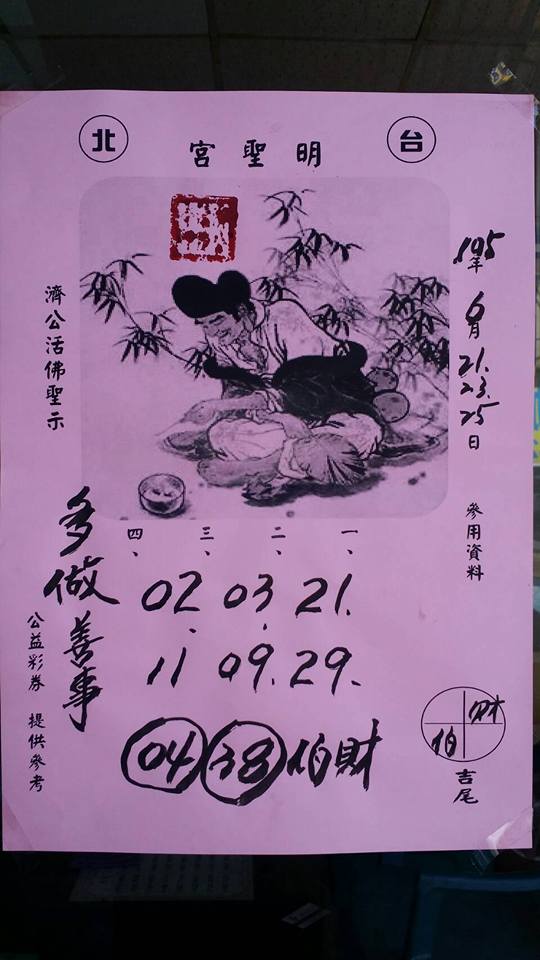 台北
明聖宮
105年6月21.23.25日
參用資料
濟公活佛聖示
一、二、三、四、
21. 03 02
29. 09. 11
04 38 伯財
多做善事
公益彩券 提供參考
財
伯
吉尾